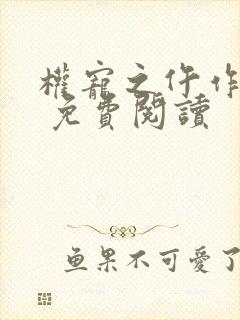 權寵之仵作
免費閱讀
鱼果不可愛了